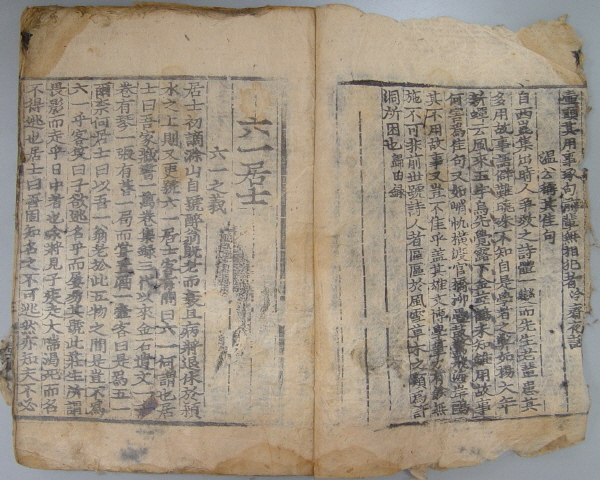 其用事琢句前輩無相犯者冷齋夜話
溫公稱其佳句
自西崑集出時人爭效之詩體一變而先生老輩患其
多用故事至語僻難曉殊不知自是學者之弊如楊文年
新蟬云風來玉宇烏先覺露下金莖鶴未知雖用故事
何害爲佳句又如峭帆橫渡官橋柳疊鼓驚飛海岸鷗
其不用故事又豈不佳乎盖其雄文博學筆力有餘無
施不可非前世號詩人者區區於風雲草木之類爲許
洞所困也歸田錄
六一居士
六一之義
居士初謫滁山自號醉翁旣老而衰且病將退休於潁
水之上則又更號六一居士客有問曰六一何謂也居
士曰吾家藏書一萬卷集錄三代以來金石遺文一千
卷有琴一張有棊一局而常置酒一壺客曰是爲五一
爾奈何居士曰以吾一翁老於此五物之間是豈不爲
六一乎客笑曰子欲逃名乎而屢易其號此莊生所謂
畏影而走乎日中者也余將見子疾走大喘渴死而名
不得逃也居士曰吾固知名之不可逃然亦知夫不必